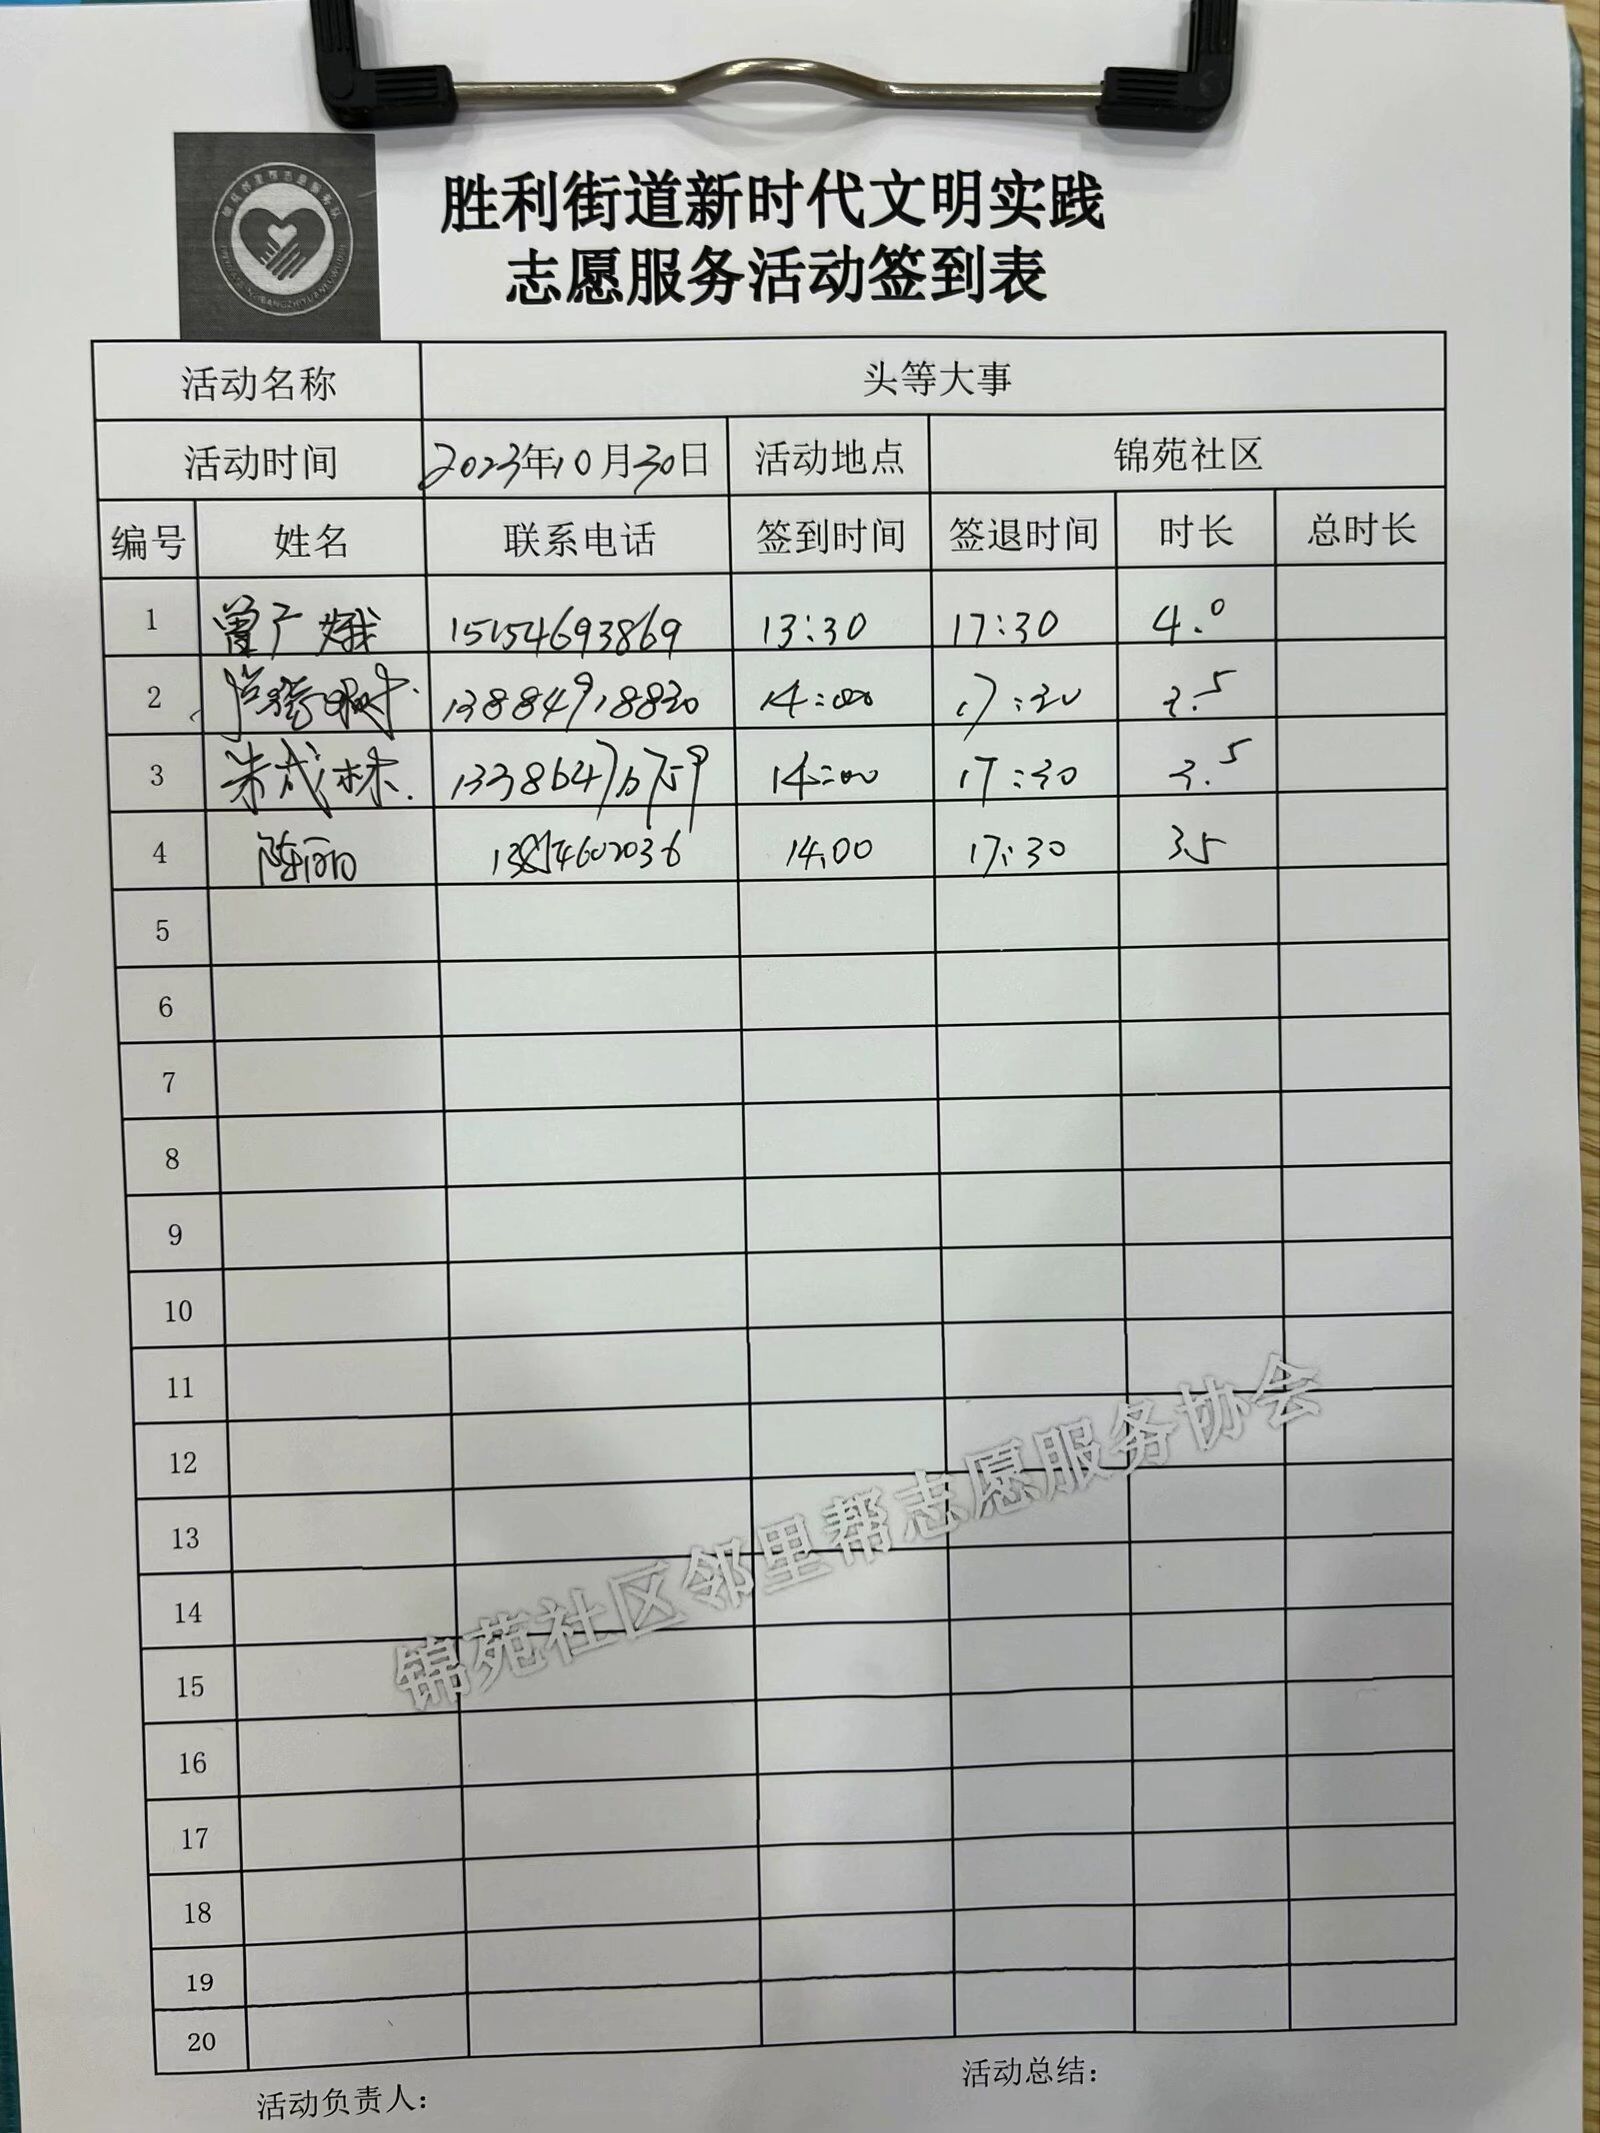 胜利街道新时代文明实践
志愿服务活动签到表
活动名称 头等大事
活动时间 2023年10月30日 活动地点 锦苑社区
编号 姓名 联系电话 签到时间 签退时间 时长 总时长
1 曾广娥 15154693869 13:30 17:30 4.0
2 13884918820 14:00 17:30 3.5
3 朱成林 14:00 17:30 3.5
4 陈丽 14:00 17:30 3.5
5
6
7
8
9
10
11
12
13
14
15
16
17
18
19
20
锦苑社区邻里帮志愿服务协会
活动负责人: 活动总结: